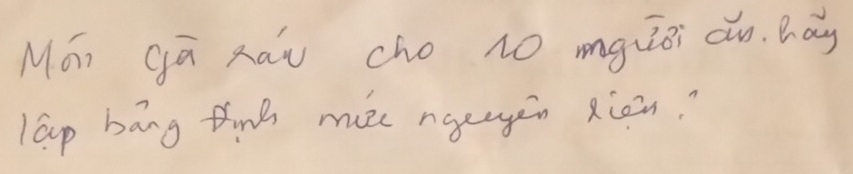 Món gà rán cho 10 người ăn. hãy
lập bảng định mức nguyên liệu?